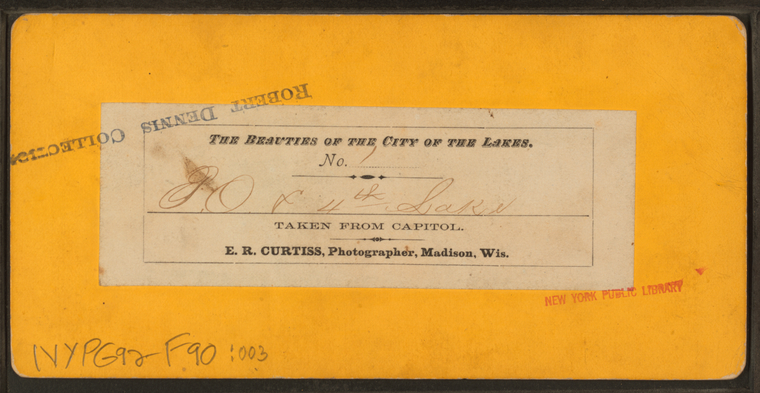 ROBERT DENNIS COLLECTION
THE BEAUTIES OF THE CITY OF THE LAKES.
No. 7
P.O & 4th Lake
TAKEN FROM CAPITOL.
E. R. CURTISS, Photographer, Madison, Wis.
NEW YORK PUBLIC LIBRARY
NYPG92-F90:003